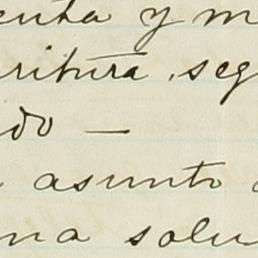 enta y m
critura, seg
do —
asunto
na solu